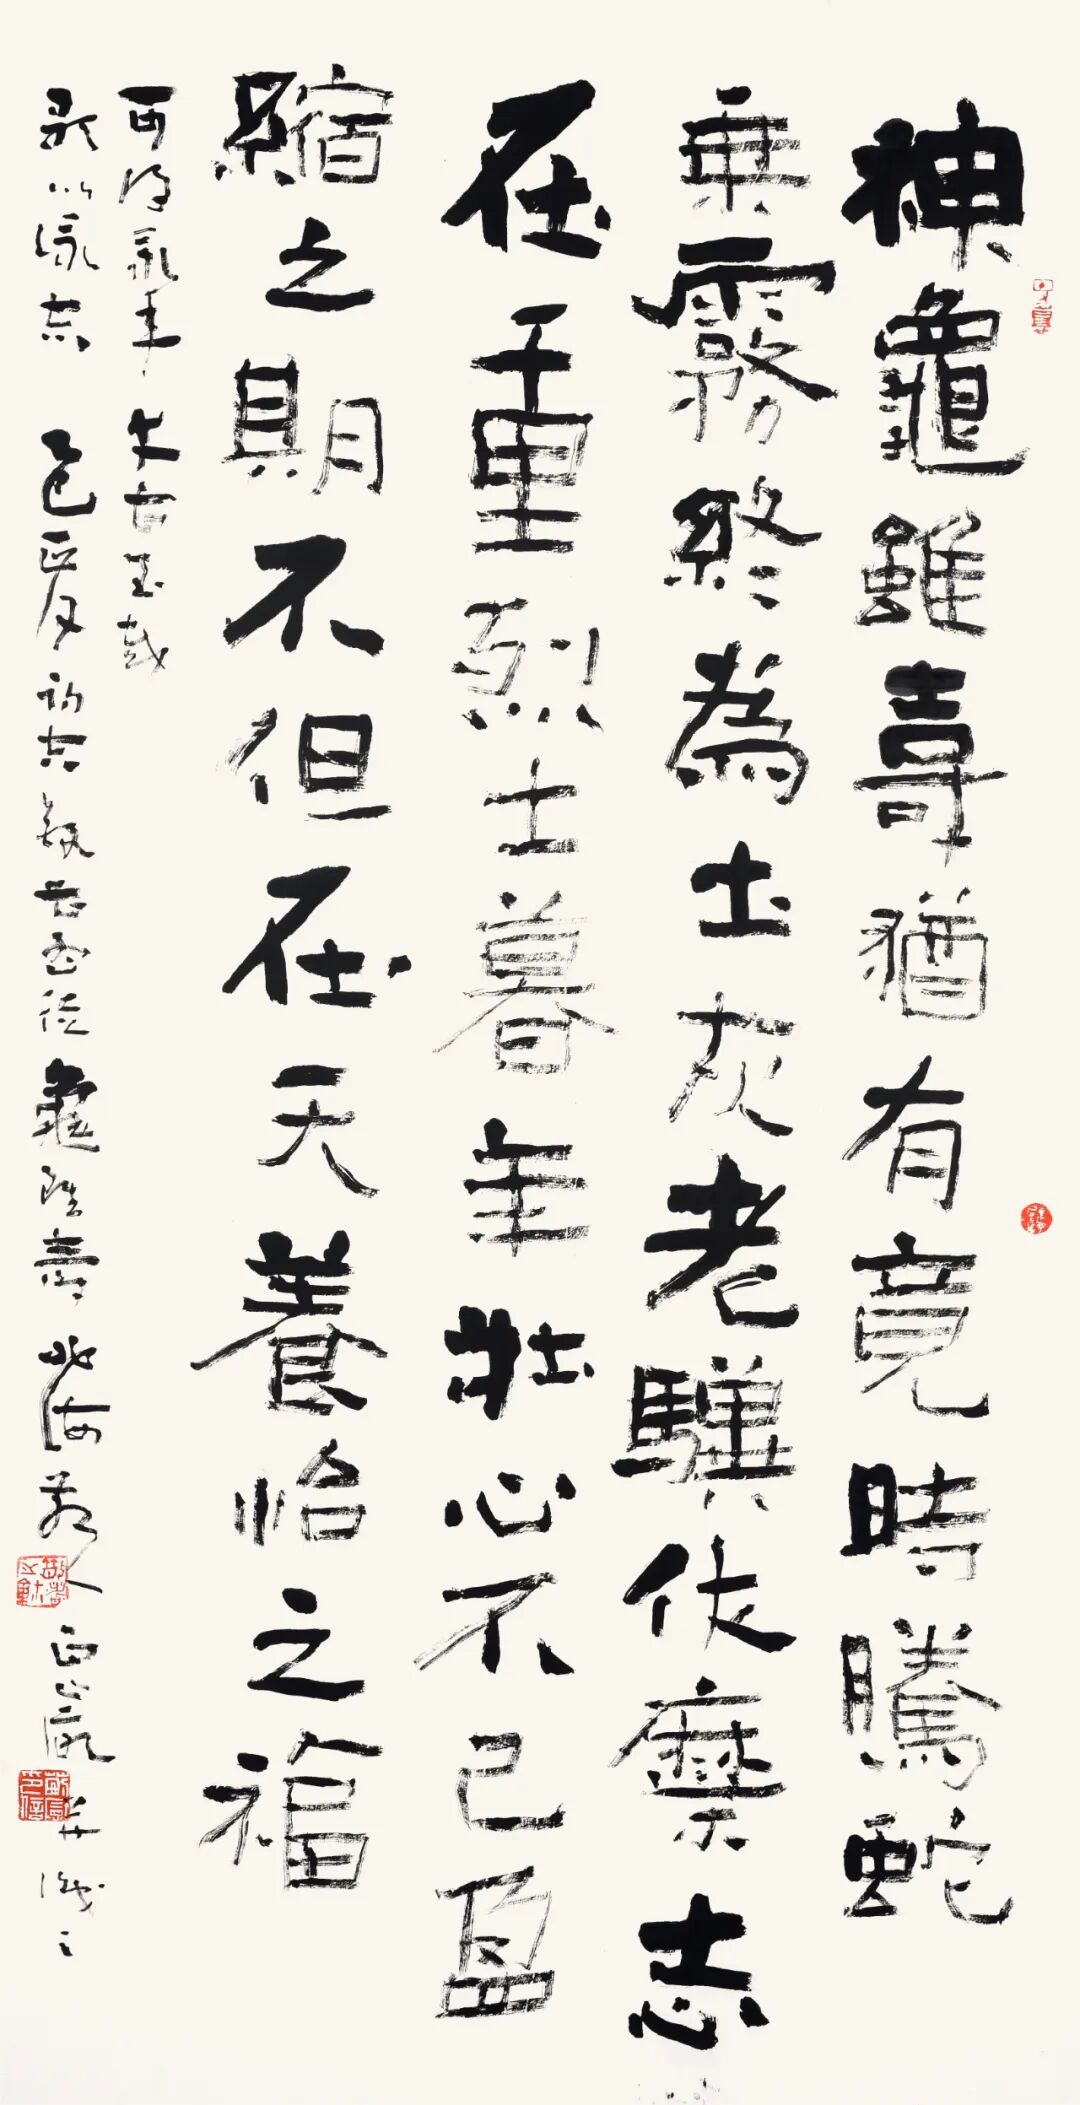 神龜雖壽猶有竟時騰蛇
乘霧終為土灰老驥伏櫪志
在千里烈士暮年壯心不已盈
縮之期不但在天養怡之福
可得永年幸甚至哉
歌以詠志 乙巳夏初 龜雖壽 北海 人 并識之